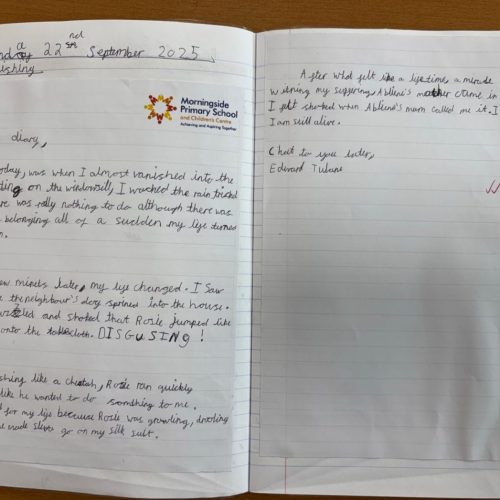 22nd September 2025
Morningside
Primary School
and Children's Centre
Achieving and Aspiring Together
diary,
oday, was when I almost vanished into the
on the windowsill, I wached the rain
was nothing to do although there was
belonging all of a sudden my life turned
minets later, my life changed. I saw
the neighbour's dog sprined into the house.
and that Rosie jumped like
onto the tablecloth. DISGUSING!
like a cheatah, Rosie ran quickly
like he wanted to do something to me.
for my life because Rosie was growling,
made go on my silk suit.
After what felt like a lifetime, a miracle
my suffering, Abliene's mother came in
I felt when Abliene's mum called me it. I
I am still alive.
Chat to you later,
Edward Tulane